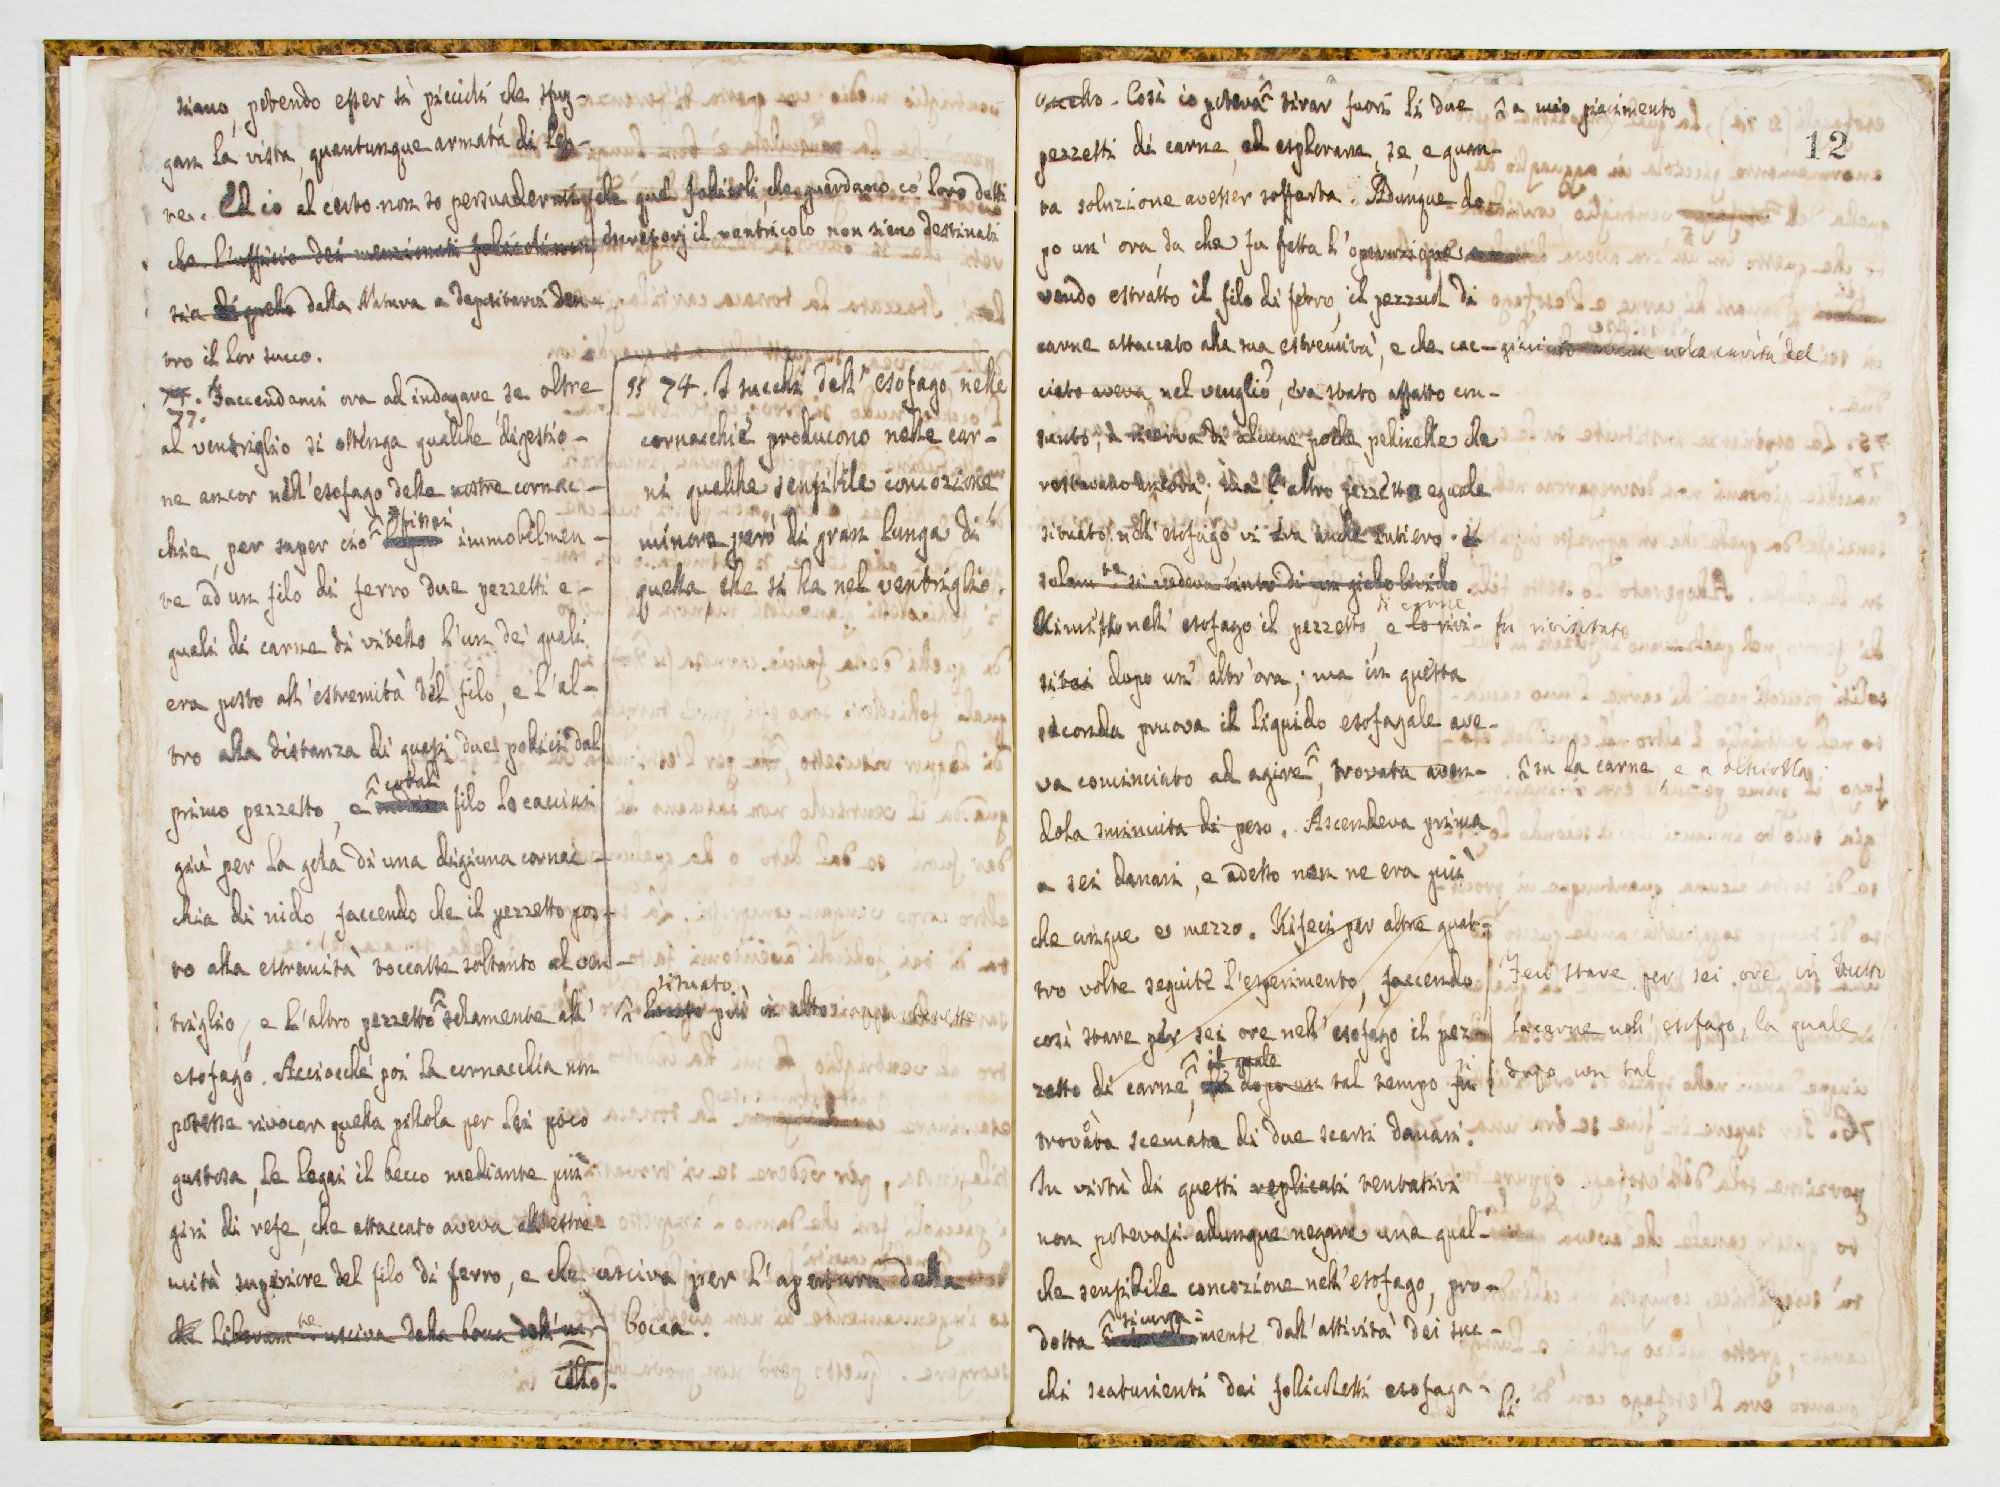 siano, potendo esser sì piccioli che sfug-
gan la vista, quantunque armata di len-
te. Ed io al certo non so persuadermi, che que' follicoli, che guardano co' loro dutti
che l'ufficio dei menzionati follicoli non escretorj il ventricolo non sieno destinati
sia di quelo dalla Natura a depositarvi den-
tro il lor succo.
74. Faccendami ora ad indagare, se oltre
77.
al ventriglio si ottenga qualche digestio-
ne ancor nell'esofago delle nostre cornac-
chie, per saper ciò fissai immobilmen-
te ad un filo di ferro due pezzetti e-
guali di carne di vitello, l'un de' quali
era posto all'estremità del filo, e l'al-
tro alla distanza di quasi due pollici dal
primo pezzetto, e cotal filo lo cacciai
giù per la gola di una digiuna cornac-
chia di nido, faccendo che il pezzetto pos-
to alla estremità toccasse soltanto il ven-
triglio, e l'altro pezzetto solamente all'
situato più in alto
esofago. Acciocché poi la cornacchia non
potesse rivocar quella pillola per lei poco
gustosa, le legai il becco mediante più
giri di refe, che attaccato aveva all'estre-
mità superiore del filo di ferro, e che usciva per l'apertura della
che liberam.te usciva dalla bocca dell'uc- bocca.
cello.
§§ 74. I succhi dell'esofago nelle
cornacchie producono nelle car-
ni qualche sensibile concozione
minore però di gran lunga di
quella che si ha nel ventriglio.
12
uccello. Così io poteva tirar fuori li due a mio piacimento
pezzetti di carne, ed esplorare, se, e quan-
ta soluzione avesser sofferta. Adunque do-
po un' ora da che fu fatta l'operazione
vendo estratto il filo di ferro, il pezzuol di
carne attaccato alla sua estremità, e che cac- nella cavità del
ciato aveva nel venglio, era stato affatto con-
sunto, a riserva di alcune poche pellicelle che
restavano ancora; ma l'altro pezzetto eguale
situato nell'esofago vi era anche intiero.
solam.te si vedeva tinto di un giallo livido.
Rimisi nell'esofago il pezzetto di carne, e lo rivi- fu rivisitato
sitai dopo un' altr'ora; ma in questa
seconda pruova il liquido esofagale ave-
va cominciato ad agire, trovata aven- su la carne, e a
dola sminuita di peso. Ascendeva prima
a sei danari, e adesso non ne era più
che cinque e mezzo. Rifeci per altre quat-
tro volte seguite l'esperimento, faccendo Feci stare per sei ore in
così stare per sei ore nell'esofago il pez- la carne nell'esofago, la quale
zetto di carne, il quale dopo un tal tempo fu dopo un tal
trovata scemata di due scarsi danari.
In virtù di questi replicati tentativi
non potevasi adunque negare una qual-
che sensibile concozione nell'esofago, pro-
dotta sicura-mente dall'attività dei suc-
chi scaturienti dei follicoletti esofaga-
li